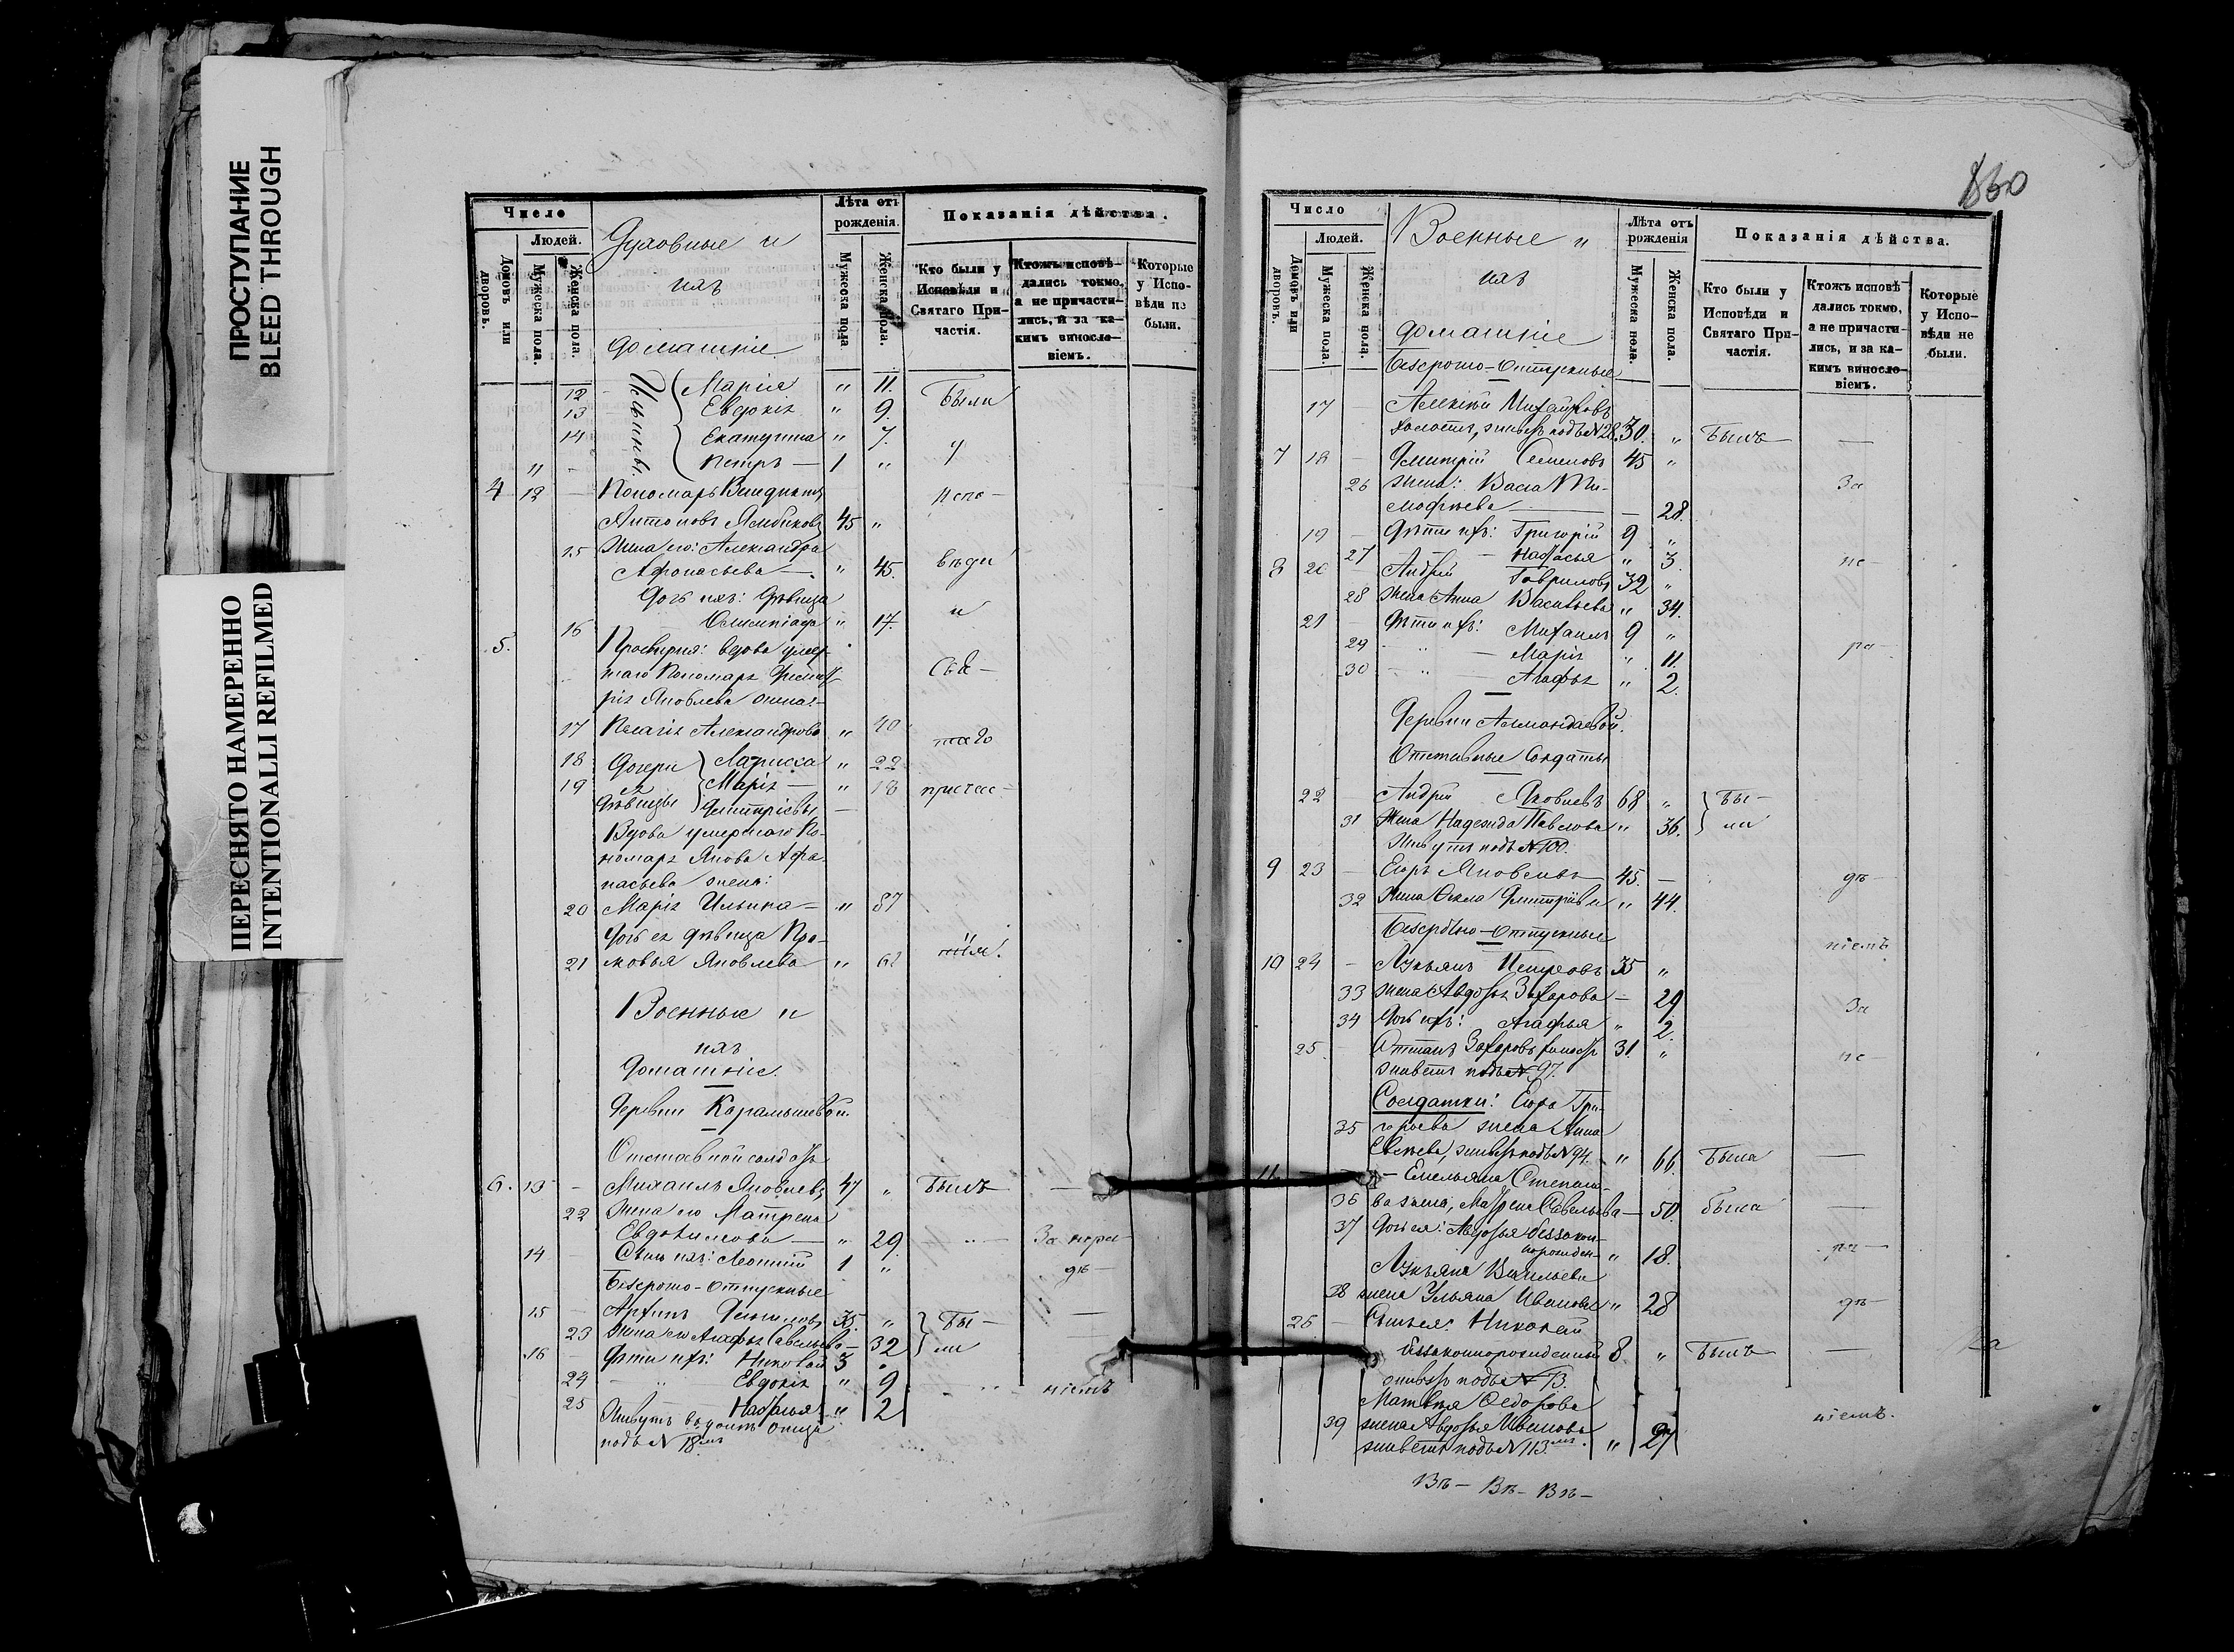 ПРОСТУПАНИЕ
BLEED THROUGH
ПЕРЕСНЯТО НАМЕРЕННО
INTENTIONALLI REFILMED
Число
Людей.
Домовъ или дворовъ.
Мужеска пола.
Женска пола.
Духовные и
ихъ
домашніе
Лѣта отъ рожденія.
Мужеска пола.
Женска пола.
Показанія дѣйства.
Кто были у Исповѣди и Святаго Причастія.
Ктожъ исповѣдались токмо, а не причастились, и за какимъ винословіемъ.
Которые у Исповѣди не были.
12 Ильины Марія " 11. Были
13 Евдокія " 9.
14 Екатерина " 7. у
11 - Петръ — 1 "
4 12 — Пономарь Венедиктъ испо-
Антоновъ 45 "
15 Жена его: Александра
Афонасьева — " 45. вѣди
Дочь ихъ: Дѣвица
16 Олимпіада " 17. и
5. Просвирня: вдова умер-
шаго Пономаря Димит- Свя-
рія Яковлева жена
17 Пелагія Александрова " 40 таго
18 Дочери Ларисса " 22
19 ея Марія — " 18 причас-
дѣвицы Димитріевы —
Вдова умершаго По-
номаря Якова Афа-
насьева жена:
20 Марія Ильина — " 87
Дочь ея дѣвица Пра-
21 сковья Яковлева " тія.
Военные и
ихъ
Домашніе.
Деревни Карамышевой.
Отставной солдатъ
6. 13 - Михаилъ Яковлевъ 47 " Былъ —
22 Жена его Матрена
Евдокимова — " 29. За нера-
14 — Сынъ ихъ: Леонтій 1 " дѣ-
Безсрочно-Отпускные
15 — 35. " Бы- —
23 Жена его Агафья Савельева — 32 ли
16 — Дѣти ихъ: Николай 3 "
24 " Евдокія " 9
25 Наталья " 2 ніемъ
Живутъ въ домѣ отца
подъ № 18мъ
860
Число
Людей.
Домовъ или дворовъ.
Мужеска пола.
Женска пола.
Военные и
ихъ
домашніе
Лѣта отъ рожденія
Мужеска пола.
Женска пола.
Показанія дѣйства.
Кто были у Исповѣди и Святаго Причастія.
Ктожъ исповѣдались токмо, а не причастились, и за какимъ винословіемъ.
Которые у Исповѣди не были.
Безсрочно-Отпускные
17 — Алексѣй Михайловъ
холостъ, живетъ подъ № 28. 30. " Былъ —
7 18 — Димитрій Семеновъ 45 "
26 Жена: Васса Ти- За
мофѣева — — 28.
19 — Дѣти ихъ: Григорій 9 "
27 — Настасья " 3. не-
8 20 — Андрей Гавриловъ 32 "
28 Жена Анна Васильева " 34.
21 — Дѣти ихъ: Михаилъ 9 "
29 " — Марія " 11. ра-
30 " — Агафья " 2.
Деревни
Отставные Солдаты
22 — Андрей Яковлевъ 68 " Бы-
31 Жена Надежда Павлова " 36. ли
Живутъ подъ № 100.
9 23 — Егоръ Яковлевъ 45. — дѣ-
32 Жена Фекла Димитріева " 44.
Безсрочно-Отпускные ніемъ
10 24 — Лукьянъ Петровъ 35 "
33 Жена Авдотья Захарова — 29. За
34 Дочь ихъ: Агафья " 2.
25 — Захаровъ холостъ 31. " не
живетъ подъ № 97.
Солдатки: Егора Гри-
35 горьева жена Анна
живетъ подъ № 94. — " 66. Была —
11 — Емельяна Степано-
36 ва жена, Матрена Савельева — 50. была —
37 Дочь ея: Авдотья беззакон-
норожден- " 18. ра —
Лукьяна Васильева
38 жена Ульяна Иванова " 28 дѣ-
26 — Сынъ ея: Николай
беззаконнорожденный 8. " Былъ —
живетъ подъ № 13.
Матвѣя Ѳедорова ніемъ.
39 жена Авдотья Иванова
живетъ подъ № 113мъ. " 27
Въ— Въ— Въ—